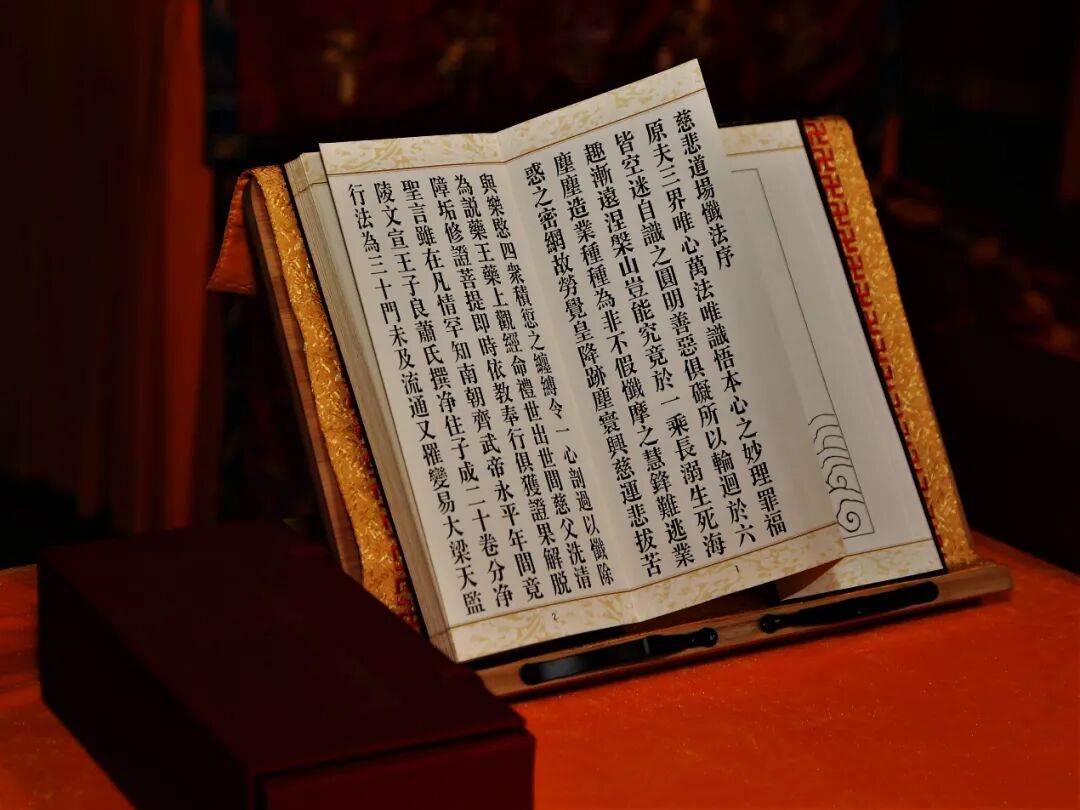 慈悲道場懺法序
原夫三界唯心萬法唯識悟本心之妙理罪福
皆空迷自識之圓明善惡俱礙所以輪迴於六
趣漸遠涅槃山豈能究竟於一乘長溺生死海
塵塵造業種種為非不假懺摩之慧鋒難逃業
惑之密網故勞覺皇降跡塵寰興慈運悲拔苦
1
與樂愍四衆積愆之纏縛令一心剖過以懺除
為說藥王藥上觀經命禮世出世間慈父洗清
障垢修證菩提即時依教奉行俱獲證果解脫
聖言雖在凡情罕知南朝齊武帝永平年間竟
陵文宣王子良蕭氏撰净住子成二十卷分净
行法為三十門未及流通又罹變易大梁天監
2